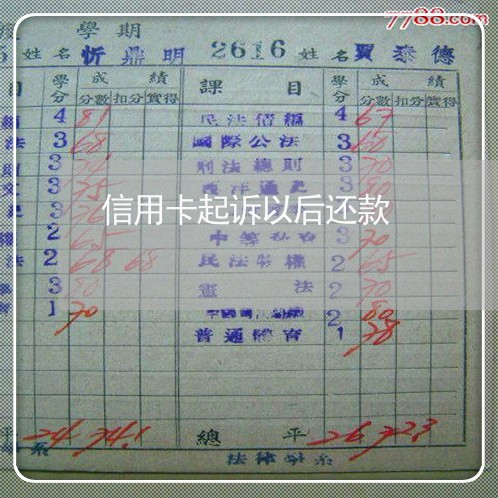 7788.com
學期
姓名 忻鼎明 2616 姓名 賈泰德
目 學分 成績 課目 學分 成績
分數 扣分 實得 分數 扣分 實得
4 81 民法債編 4 67
法 3 68 國際公法 3 60
3 刑法總則 3 70
3 75 西洋通史 3
信用卡起诉以后还款
2 65 3 70
法 2 68 68 民法物權 2 65
3 80 憲法 2 70
1 70 2 80
普通體育 1 78
平 24 74.1 總平 26 72.3
系 法律學系